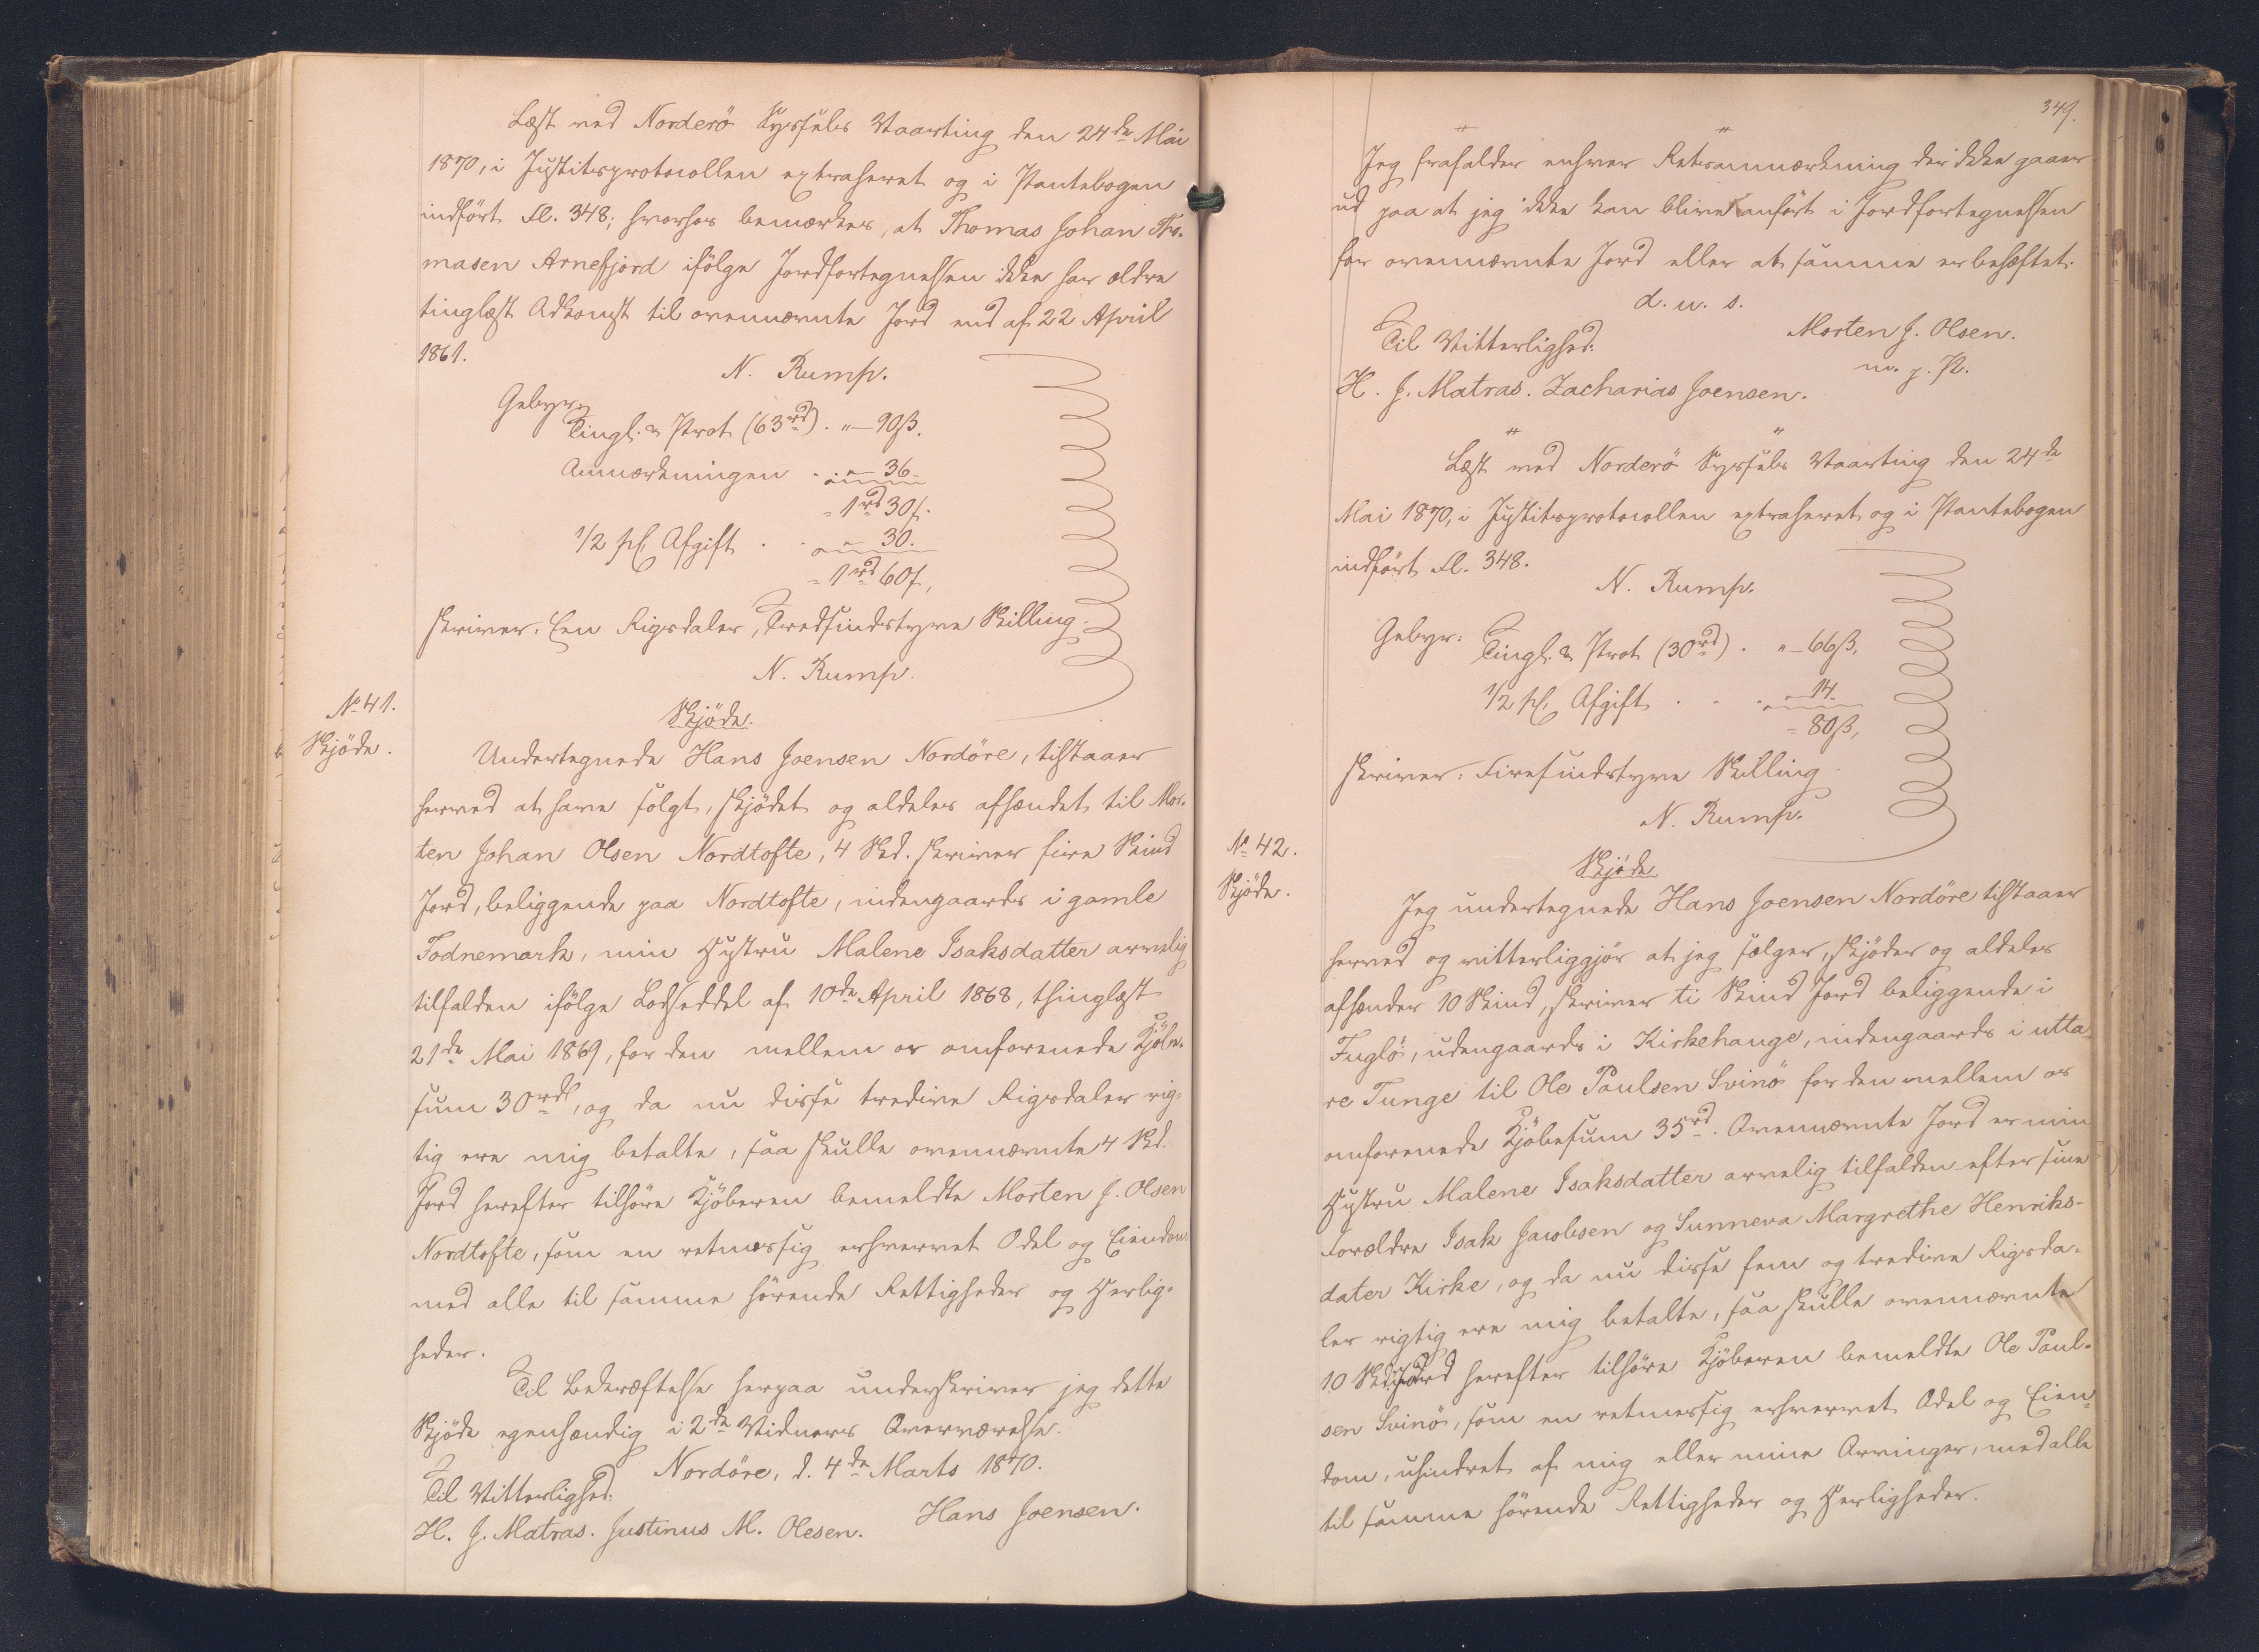 Læst ved Norderö Sysfels Vaarting den 24de Mai
1870, i Justitsprotocollen extraheret og i Pantebogen
indført Fl. 348; hvorhos bemærkes, at Thomas Johan Tho-
masen Arnefjord ifölge Jordfortegnelsen ikke har ældre
tinglæst Adkomst til ovennævnte Jord end af 22 April
1861.
N. Rump.
Gebyr:
Tingl. & Prot (63rd). "–90ß.
Anmærkningen . . "–36–
= 1rd 30ß.
1/2 pCt Afgift . . "– 30.
= 1rd 60ß,
skriver: Een Rigsdaler, Tredsindstyve Skilling.
N. Rump.
No 41.
Skjöde.
Skjöde.
Undertegnede Hans Joensen Nordöre, tilstaaer
herved at have solgt, skjödet og aldeles afhændet til Mor-
ten Johan Olsen Nordtofte, 4 Skd. skriver fire Skind
Jord, beliggende paa Nordtofte, indengaards i gamle
Todnemark, min Hustru Malene Isaksdatter arvelig
tilfalden ifölge Lodseddel af 10de April 1868, thinglæst
21de Mai 1869, for den mellem os omforenede Kjöbe-
sum 30rdl, og da nu disse tredive Rigsdaler rig-
tig ere mig betalte, saa skulle ovennævnte 4 Skd.
Jord herefter tilhöre Kjöberen bemeldte Morten J. Olsen
Nordtofte, som en retmessig erhvervet Odel og Eiendom
med alle til samme hörende Rettigheder og Herlig-
heder.
Til Bekræftelse herpaa underskriver jeg dette
Skjöde egenhændig i 2de Vidners Overværelse.
Nordöre, d. 4de Marts 1870.
Til Vitterlighed:
Hans Joensen.
H. J. Matras. Justinus M. Olesen.
349.
Jeg frafalder enhver Retsanmærkning der ikke gaaer
ud paa at jeg ikke kan blive anfört i Jordfortegnelsen
for ovennævnte Jord eller at samme er behæftet.
d. u. s.
Morten J. Olsen.
Til Vitterlighed:
m. f. P.
H. J. Matras. Zacharias Joensen.
Læst ved Norderö Sysfels Vaarting den 24de
Mai 1870, i Justitsprotocollen extraheret og i Pantebogen
indfört Fl. 348.
N. Rump.
Gebyr:
Tingl. & Prot (30rd) . "–66ß.
1/2 pCt Afgift . . . "–14.
= 80ß,
skriver: Firesindstyve Skilling.
N. Rump.
No 42.
Skjöde.
Skjöde.
Jeg undertegnede Hans Joensen Nordöre tilstaaer
herved og vitterliggjör at jeg sælger, skjöder og aldeles
afhænder 10 Skind, skriver ti Skind Jord beliggende i
Fuglö, udengaards i Kirkehauge, indengaards i utta-
re Tunge til Ole Poulsen Svinö for den mellem os
omforenede Kjöbesum 35rd. Ovennævnte Jord er min
Hustru Malene Isaksdatter arvelig tilfalden efter sine
Forældre Isak Jacobsen og Sunneva Margrethe Henriks-
dater Kirke, og da nu disse fem og tredive Rigsda-
ler rigtig ere mig betalte, saa skulle ovennævnte
10 Skd. Jord herefter tilhöre Kjöberen bemeldte Ole Poul-
sen Svinö, som en retmessig erhvervet Odel og Eien-
dom, uhindret af mig eller mine Arvinger, med alle
til samme hörende Rettigheder og Herligheder.